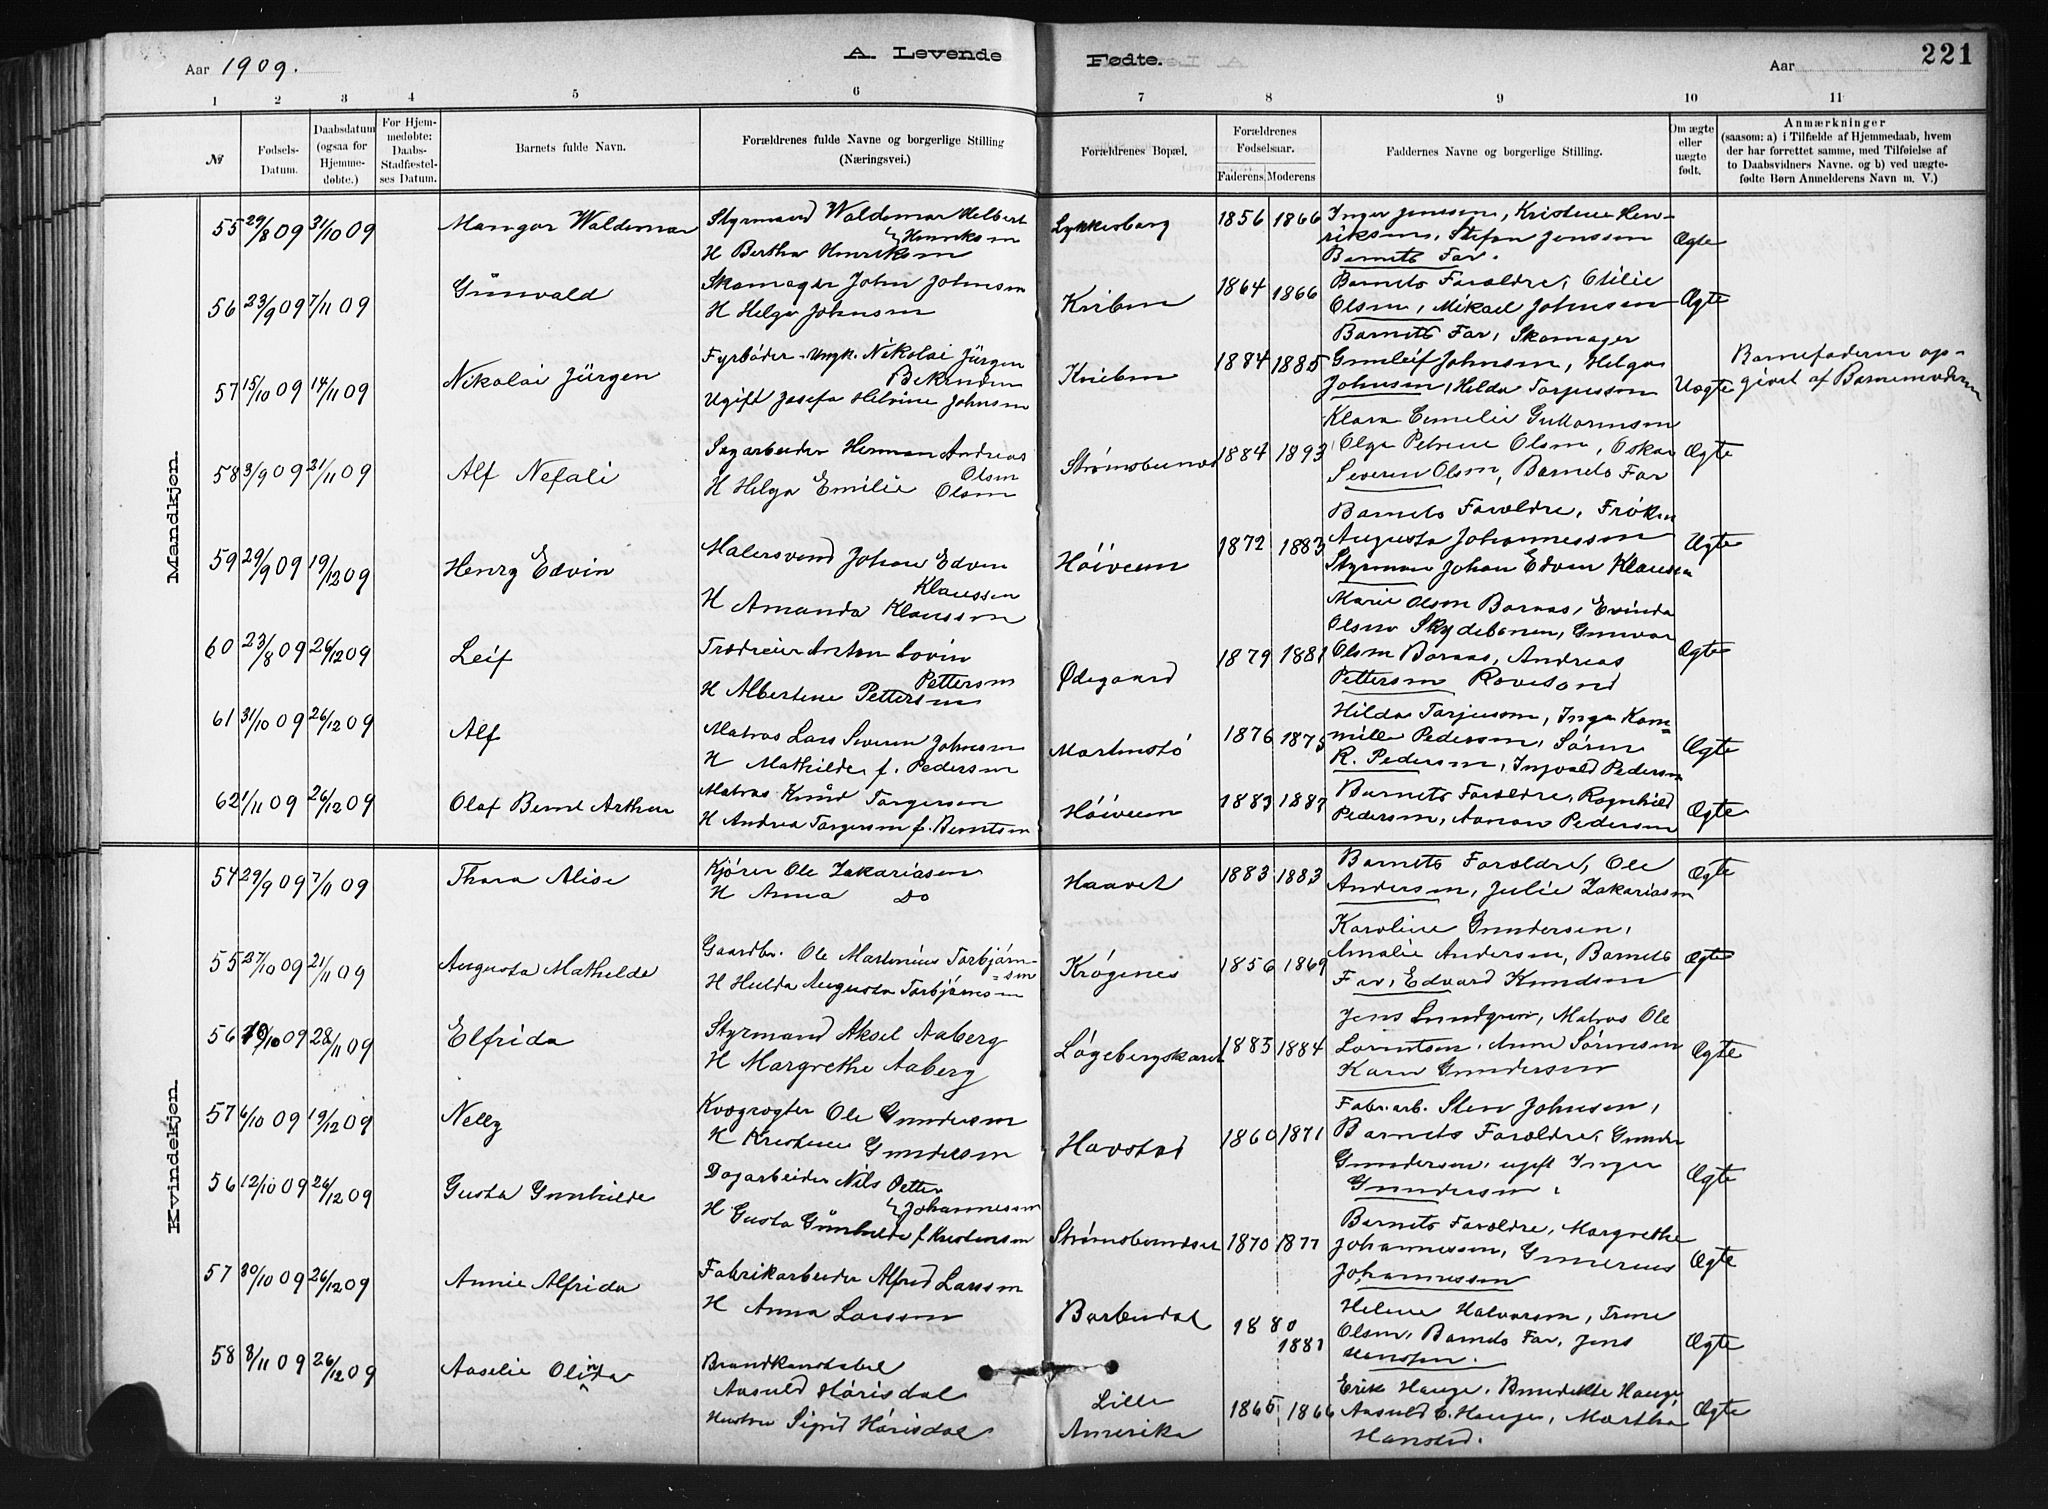 Aar 1909. A. Levende Fødte. Aar 221
1 2 3 4 5 6 7 8 9 10 11
№ Fødsels-Datum. Daabsdatum (ogsaa for Hjemmedøbte.) For Hjemmedøbte: Daabs-Stadfæstelses Datum. Barnets fulde Navn. Forældrenes fulde Navne og borgerlige Stilling (Næringsvei.) Forældrenes Bopæl. Forældrenes Fødselsaar. Faderens. Moderens Faddernes Navne og borgerlige Stilling. Om ægte eller uægte født. Anmærkninger (saasom: a) i Tilfælde af Hjemmedaab, hvem der har forrettet samme, med Tilføielse af to Daabsvidners Navne. og b) ved uægtefødte Børn Anmelderens Navn m. V.)
Mandkjøn.
55 29/8 09 31/10 09 Mangor Waldemar Styrmand Waldemar Helbert
Henriksen
H Bertha Henriksen Lykkesborg 1856 1866 Inger Jenssen, Kristine Hen-
riksen, Stefan Jenssen
Barnets Far. Ægte
56 23/9 09 7/11 09 Günvald Skomager John Johnsen
H Helga Johnsen Kniben 1864 1866 Barnets Forældre, Otilie
Olsen, Mikael Johnsen Ægte
57 15/10 09 14/11 09 Nikolai Jürgen Fyrbøder-Ungk. Nikolai Jürgen
Ugift Josefa Helvine Johnsen Kniben 1884 1885 Barnets Far, Skomager
Gunleif Johnsen, Helga
Johnsen, Hilda Torjussen Uægte Barnefaderen op-
givet af Barnemoderen
58 3/9 09 21/11 09 Alf Nefali Sagarbeider Herman Andreas
Olsen
H Helga Emilie Olsen 1884 1893 Klara Emelie Guttormsen
Olga Petrine Olsen, Oskar
Severin Olsen, Barnets Far Ægte
59 29/9 09 19/12 09 Henry Edvin Malersvend Johan Edvin
Klaussen
H Amanda Klaussen Høiveien 1872 1883 Barnets Forældre, Frøken
Augusta Johannessen
Styrman Johan Edvin Klaussen Ægte
60 23/8 09 26/12 09 Leif Trædreier Anton Lovin
Pettersen
H Albertine Pettersen Ødegaard 1879 1881 Marie Olsen Boraas, Evinda
Olsen Skydebanen, Gunvor
Olsen Boraas, Andreas
Pettersen Rovesand Ægte
61 31/10 09 26/12 09 Alf Matros Lars Severin Johnsen
H Mathilde f. Pedersen Martinstø 1876 1875 Hilda Torjussen, Inga Kam-
mille Pedersen, Søren
R. Pedersen, Ingvald Pedersen Ægte
62 1/11 09 26/12 09 Olaf Bernt Arthur Matros Knüd Torgersen
H Andrea Torgersen f. Berntsen Høiveien 1883 1887 Barnets Forældre, Ragnhild
Pedersen, Aanon Pedersen Ægte
Kvindekjøn.
54 29/9 09 7/11 09 Thora Alise Kjører Ole Zakariasen
H Anna Do Haavet 1883 1883 Barnets Forældre, Ole
Andersen, Julie Zakariasen Ægte
55 27/10 09 21/11 09 Augusta Mathilde Gaardbr. Ole Martinius Torbjørn-
-sen
H Hulda Augusta Torbjørnsen Krøgenes 1856 1869 Karoline Gundersen,
Amalie Andersen, Barnets
Far, Edvard Knudsen Ægte
56 /10 09 28/11 09 Elfrida Styrmand Aksel Aaberg
H Margrethe Aaberg Løgebergskaret 1883 1884 Jens Lundgren, Matros Ole
Lorentsen, Anne Sørensen
Karen Gundersen Ægte
57 6/10 09 19/12 09 Nelly Kvægrøgter Ole Gundersen
H Kristine Gundersen Havstad 1860 1871 Fabr.arb. Sten Johnsen,
Barnets Forældre, Gunder
Gundersen, ugift Inger
Gundersen. Ægte
56 12/10 09 26/12 09 Gusta Gunhilde Dagarbeider Nils Petter
Johannessen
H Gusta Günhilde f. Kristensen Strømsbundset 1870 1877 Barnets Forældre, Margrethe
Johannessen, Gunerius
Johannessen Ægte
57 30/10 09 26/12 09 Annie Alfrida Fabrikarbeider Alfred Larssen
H Anna Larssen Barbudal 1880 1881 Helene Halvorsen, Trine
Olsen, Barnets Far, Jens
Hanssen. Ægte
58 8/11 09 26/12 09 Aaselie Olinda Brandkonstabel
Aasuld Hørisdal
Hustru Sigrid Hørisdal Lille
Amerika 1865 1866 Erik Hauge, Benedikte Hauge
Aasuld O. Hauge, Martha
Hansted. Ægte